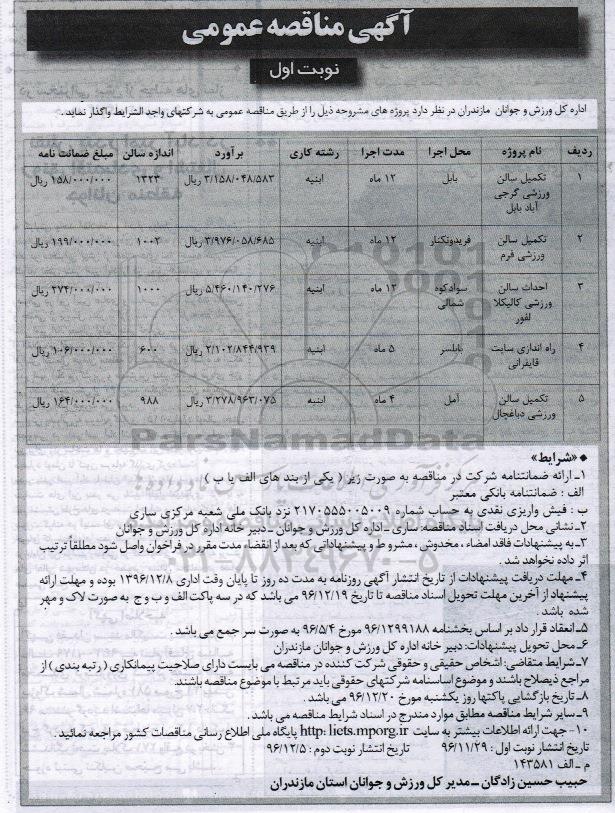 آگهی مناقصه عمومی
نوبت اول
اداره کل ورزش و جوانان مازندران در نظر دارد پروژه های مشروحه ذیل را از طریق مناقصه عمومی به شرکتهای واجد الشرایط واگذار نماید.
ردیف نام پروژه محل اجرا مدت اجرا رشته کاری برآورد اندازه سالن مبلغ ضمانت نامه
۱ تکمیل سالن ورزشی گرجی آباد بابل بابل ۱۲ ماه ابنیه ۳/۱۵۸/۰۴۸/۵۸۳ ریال ۱۳۲۳ ۱۵۸/۰۰۰/۰۰۰ ریال
۲ تکمیل سالن ورزشی فرم فریدونکنار ۱۲ ماه ابنیه ۳/۹۷۶/۰۵۸/۶۸۵ ریال ۱۰۰۲ ۱۹۹/۰۰۰/۰۰۰ ریال
۳ احداث سالن ورزشی کالیکلا لفور سوادکوه شمالی ۱۲ ماه ابنیه ۵/۴۶۰/۱۴۰/۲۷۶ ریال ۱۰۰۰ ۲۷۴/۰۰۰/۰۰۰ ریال
۴ راه اندازی سایت قایقرانی بابلسر ۵ ماه ابنیه ۲/۱۰۲/۸۴۴/۹۳۹ ریال ۶۰۰ ۱۰۶/۰۰۰/۰۰۰ ریال
۵ تکمیل سالن ورزشی دباغچال آمل ۴ ماه ابنیه ۳/۲۷۸/۹۶۳/۰۷۵ ریال ۹۸۸ ۱۶۴/۰۰۰/۰۰۰ ریال
ParsNamadData
«شرایط»
۱ـ ارائه ضمانتنامه شرکت در مناقصه به صورت زیر ( یکی از بند های الف یا ب )
الف : ضمانتنامه بانکی معتبر
ب : فیش واریزی نقدی به حساب شماره ۲۱۷۰۵۵۵۰۰۵۰۰۹ نزد بانک ملی شعبه مرکزی ساری
۲ـ نشانی محل دریافت اسناد مناقصه: ساری ـ اداره کل ورزش و جوانان ـ دبیر خانه اداره کل ورزش و جوانان
۳ـ به پیشنهادات فاقد امضاء ، مخدوش ، مشروط و پیشنهاداتی که بعد از انقضاء مدت مقرر در فراخوان واصل شود مطلقاً ترتیب
اثر داده نخواهد شد .
۴ـ مهلت دریافت پیشنهادات از تاریخ انتشار آگهی روزنامه به مدت ده روز تا پایان وقت اداری ۱۳۹۶/۱۲/۸ بوده و مهلت ارائه
پیشنهاد از آخرین مهلت تحویل اسناد مناقصه تا تاریخ ۹۶/۱۲/۱۹ می باشد که در سه پاکت الف و ب و ج به صورت لاک و مهر
شده باشد .
۵ـ انعقاد قرار داد بر اساس بخشنامه ۹۶/۱۲۹۹۱۸۸ مورخ ۹۶/۵/۴ به صورت سر جمع می باشد .
۶ـ محل تحویل پیشنهادات: دبیر خانه اداره کل ورزش و جوانان مازندران
۷ـ شرایط متقاضی: اشخاص حقیقی و حقوقی شرکت کننده در مناقصه می بایست دارای صلاحیت پیمانکاری ( رتبه بندی ) از
مراجع ذیصلاح باشند و موضوع اساسنامه شرکتهای حقوقی باید مرتبط با موضوع مناقصه باشند.
۸ـ تاریخ بازگشایی پاکتها روز یکشنبه مورخ ۹۶/۱۲/۲۰ می باشد .
۹ـ سایر شرایط مناقصه مطابق موارد مندرج در اسناد شرایط مناقصه می باشد .
۱۰ـ جهت ارائه اطلاعات بیشتر به سایت http: Iiets.mporg.ir پایگاه ملی اطلاع رسانی مناقصات کشور مراجعه نمائید .
تاریخ انتشار نوبت اول : ۹۶/۱۱/۲۹ تاریخ انتشار نوبت دوم : ۹۶/۱۲/۵
م ـ الف ۱۴۳۵۸۱
حبیب حسین زادگان ـ مدیر کل ورزش و جوانان استان مازندران